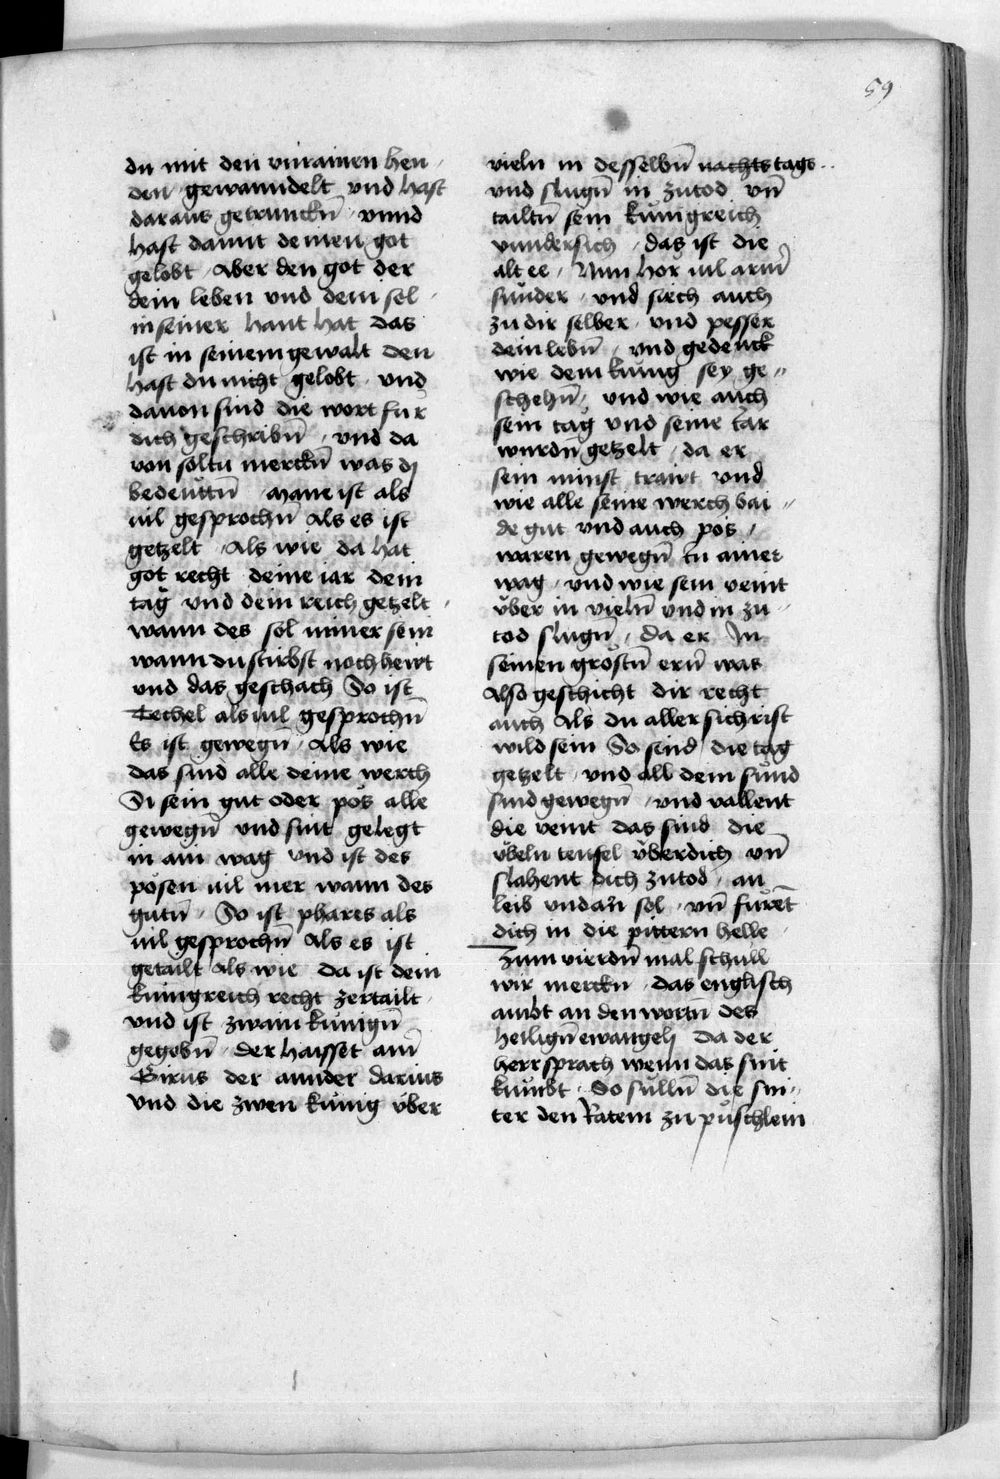 59
du mit den vnrainen hen
den gewanndelt vnd hast
daraus getrunckn̄ vnnd
hast damit deinen got
gelobt Aber den got der
dein leben vnd dein sel
in seiner hant hat das
ist in seinem gewalt den
hast du nicht gelobt vnd
dauon sind die wort fur
dich geschribn̄ vnd da
von soltu merckn̄ was dj
bedeuttn̄ Mane ist als
uil gesprochn̄ Als es ist
getzelt Als wie da hat
got recht deine iar dein
tag vnd dein reich getzelt
wann des sol nimer sein
wann du stirbst noch heint
vnd das geschach So ist
Techel als uil gesprochn̄
Es ist gewegn̄ Als wie
das sind alle deine werch
Si sein gut oder pös alle
gewegn̄ vnd sint gelegt
in ain wag vnd ist des
pösen uil mer wann des
gutn̄ So ist phares als
uil gesprochn̄ Als es ist
getailt Als wie da ist dein
kunigreich recht zertailt
vnd ist zwain kunign̄
gegebn̄ der haisset ain̄
Cirus der annder darius
vnd die zwen kunig über
vieln in desselbn̄ nachts tags
vnd slugn̄ in zutod vn̄
tailtn̄ sein kunigreich
vnndersich das ist die
alt ee Nun hor uil arm̄
sunder vnd siech auch
zu dir selber vnd pesser
dein lebn̄ vnd gedenck
wie dem kunig sey ge
schehn̄ vnd wie auch
sein tag vnd seine iar
wurdn̄ getzelt da er
sein minst trawt vnd
wie alle seine werch bai
de gut vnd auch pös
waren gewegn̄ in ainer
wag vnd wie sein veint
über in vieln̄ vnd in zu
tod slugn̄ da er In
seinen gröstn̄ ern̄ was
Also geschicht dir recht
auch Als du aller sichrist
wild sein So seind die tag
getzelt vnd all dein sünd
sind gewegn̄ vnd vallent
die veint das sind die
übeln teufel über dich vn̄
slahent dich zutod an
leib vnd an sel vn̄ furēt
dich in die pittern helle
Zum vierdn̄ mal schull
wir merckn das englisch
ambt an den wortn̄ des
heilign̄ ewangelj Da der
herr sprach wenn das snit
kumbt So sulln̄ die sni
ter den Ratem zu puschlein